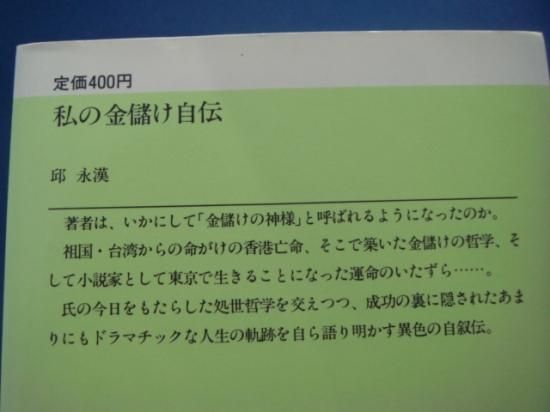 定価400円
私の金儲け自伝
邱 永漢
著者は、いかにして「金儲けの神様」と呼ばれるようになったのか。
祖国・台湾からの命がけの香港亡命、そこで築いた金儲けの哲学、そ
して小説家として東京で生きることになった運命のいたずら……。
氏の今日をもたらした処世哲学を交えつつ、成功の裏に隠されたあま
りにもドラマチックな人生の軌跡を自ら語り明かす異色の自叙伝。